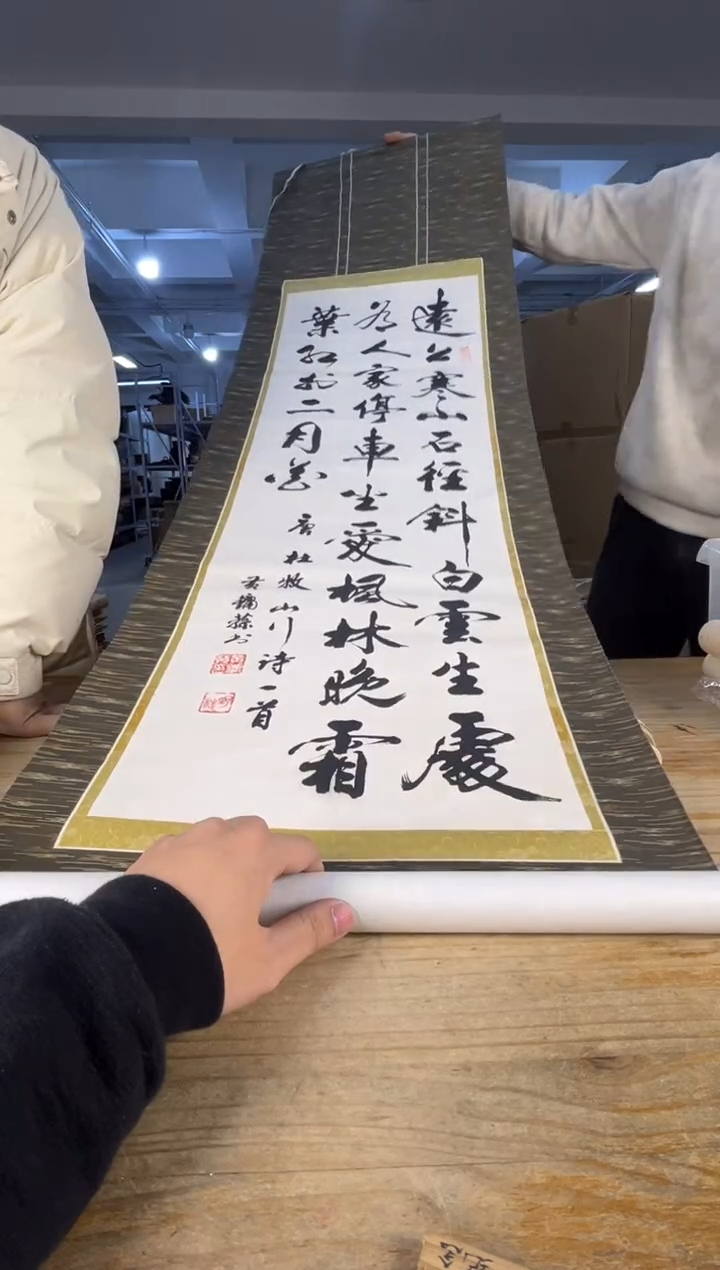 遠上寒山石徑斜白雲生處
有人家停車坐愛楓林晚霜
葉紅於二月花
唐杜牧山行詩一首